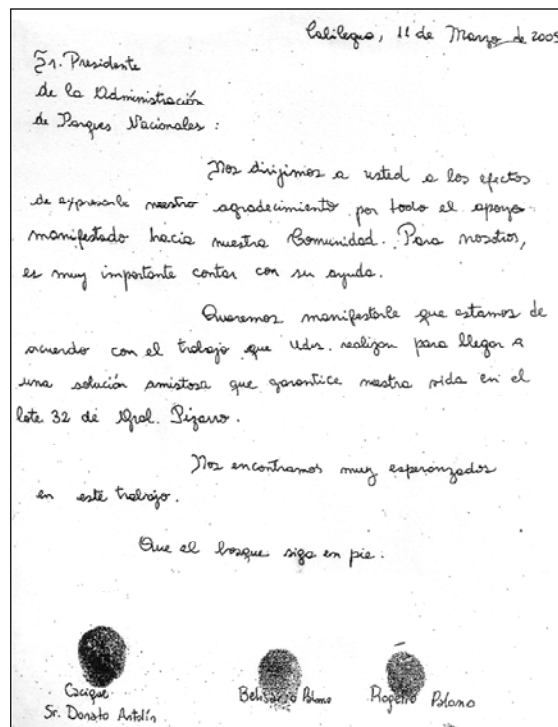 Calilegua, 11 de Marzo de 2005
Sr. Presidente
de la Administración
de Parques Nacionales :
Nos dirijimos a usted a los efectos
de expresarle nuestro agradecimiento por todo el apoyo
manifestado hacia nuestra Comunidad. Para nosotros,
es muy importante contar con su ayuda.
Queremos manifestarle que estamos de
acuerdo con el trabajo que Uds. realizan para llegar a
una solución amistosa que garantice nuestra vida en el
lote 32 de Gral. Pizarro.
Nos encontramos muy esperanzados
en este trabajo.
Que el bosque siga en pie.
Cacique
Sr. Donato Antolín
Belisario Palano
Rogelio Palano